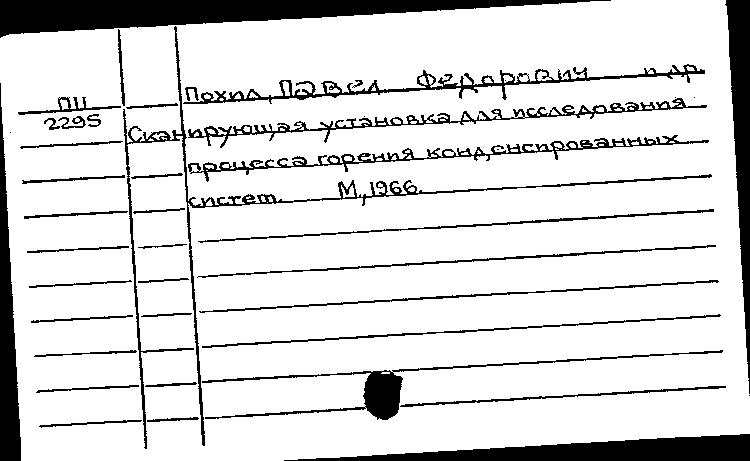 Похил, Павел Федорович и др.
ПII
2295
Сканирующая установка для исследования
процесса горения конденсированных
систем. М., 1966.